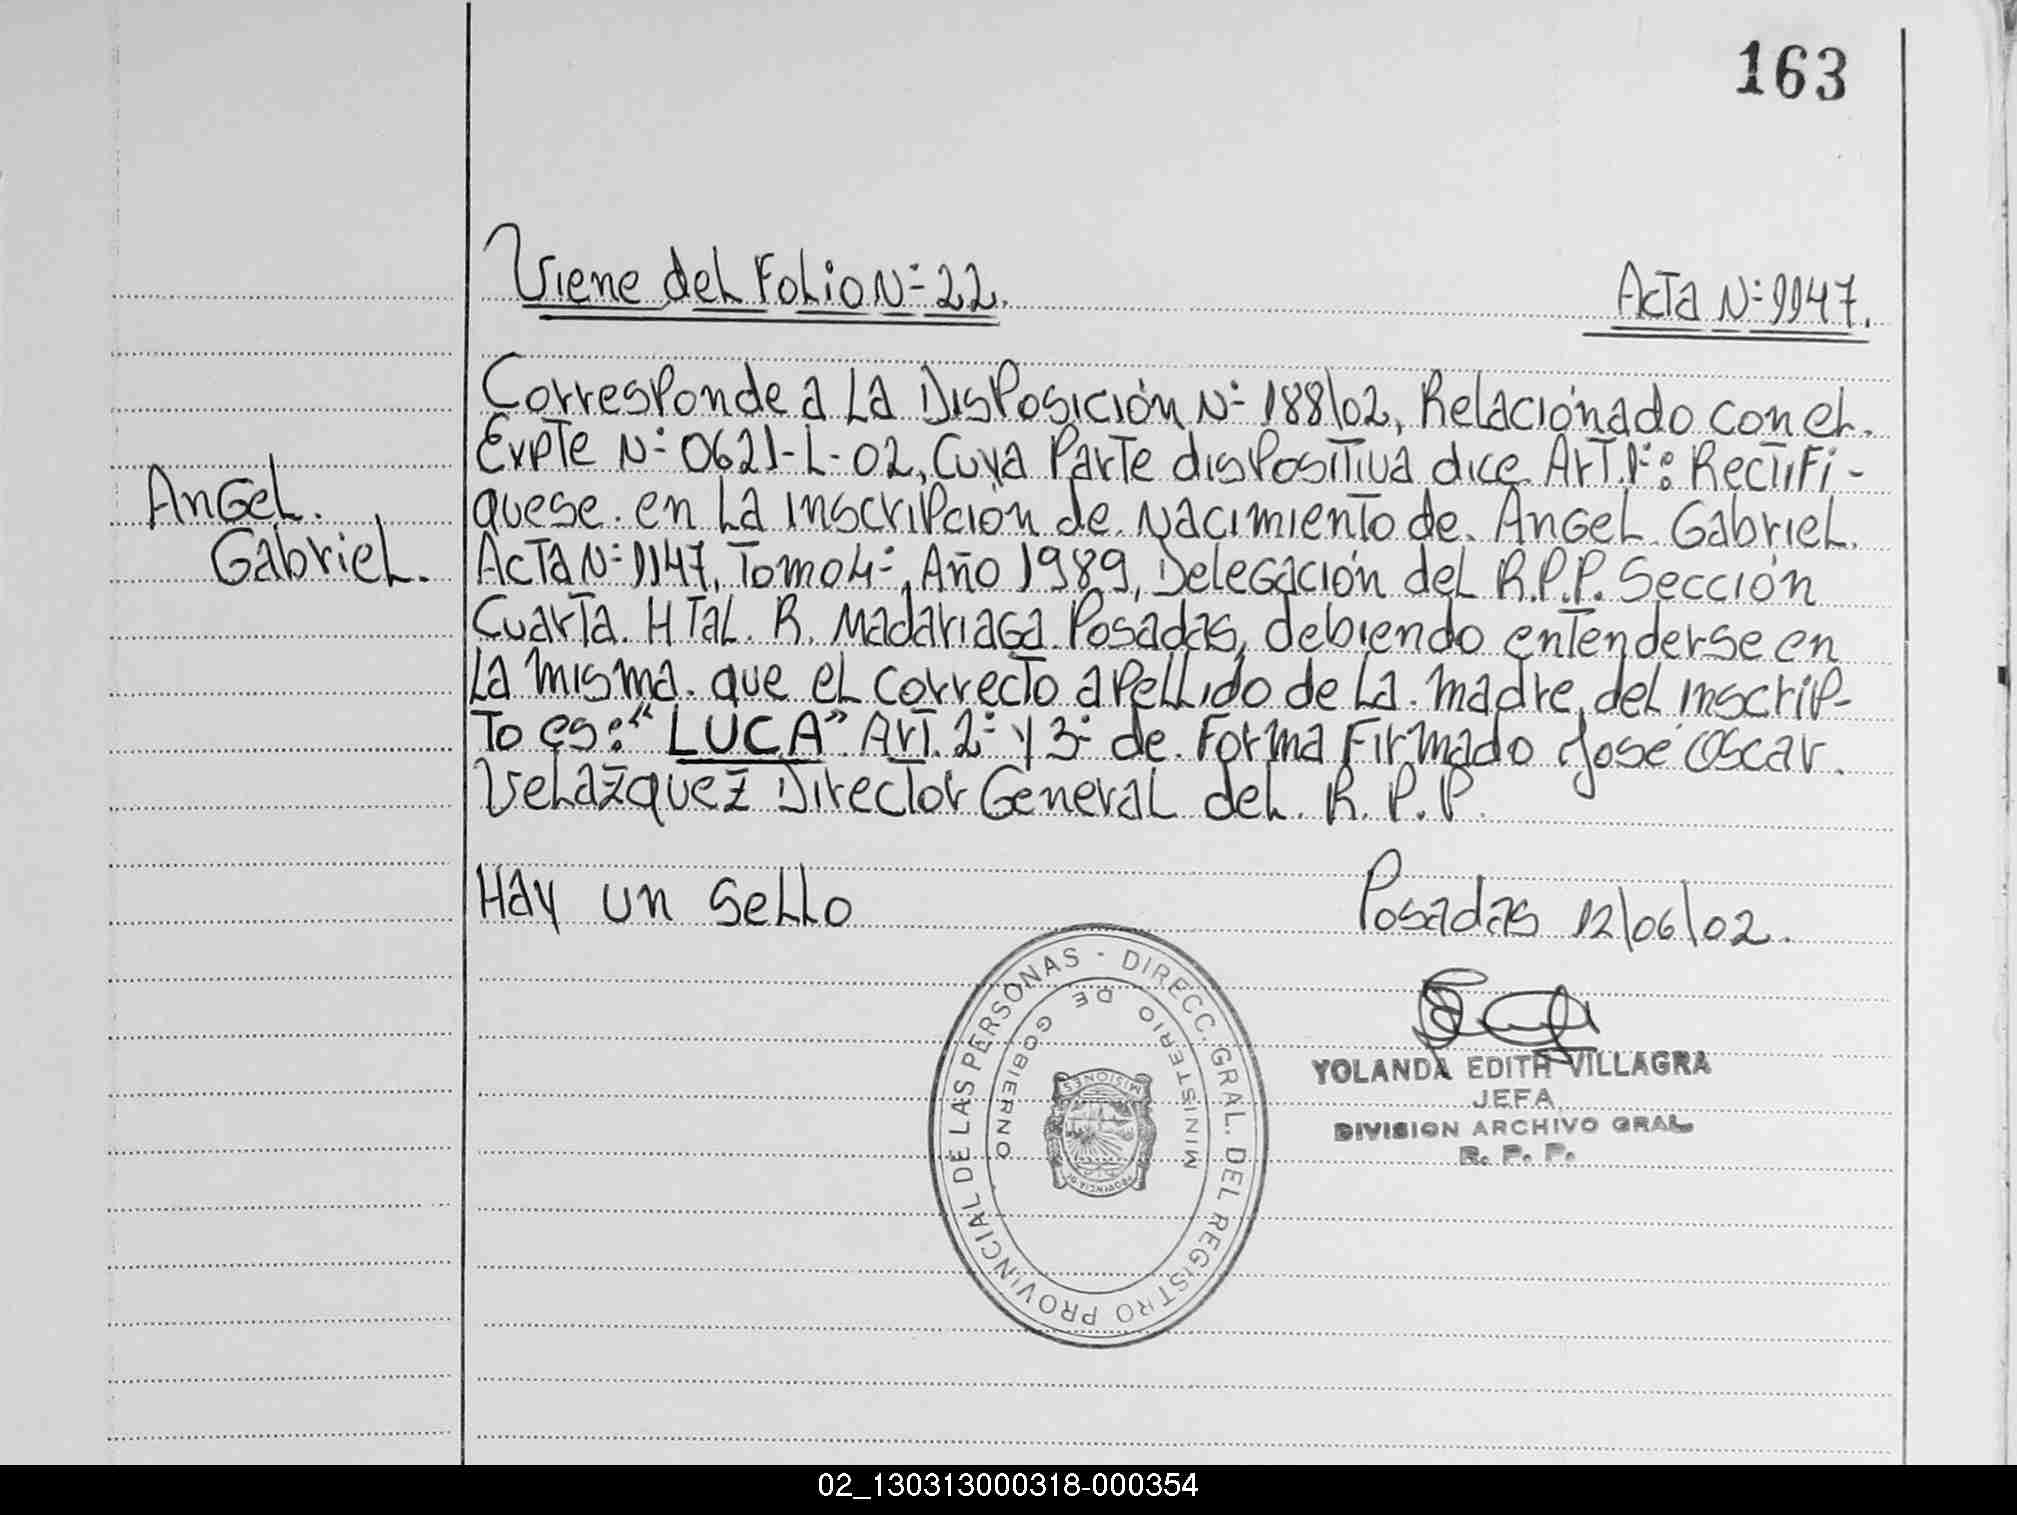 163
Viene del Folio Nº 22.
Acta Nº 1147.
Corresponde a La Disposición Nº 188/02, Relacionado con el.
Expte Nº 0621-L-02, Cuya Parte dispositiva dice Art. 1º: Rectifi-
quese en La inscripción de Nacimiento de Angel Gabriel.
Acta Nº 1147, Tomo 4º, Año 1989, Delegación del R.P.P. Sección
Cuarta. HTal. R. Madariaga Posadas, debiendo entenderse en
La misma. que el correcto apellido de La madre del inscrip-
to es: "LUCA" Art. 2º y 3º de Forma Firmado José Oscar.
Velazquez Director General del R. P. P.
Angel.
Gabriel.
Hay un Sello
Posadas 12/06/02.
DIRECC. GRAL. DEL REGISTRO PROVINCIAL DE LAS PERSONAS -
MINISTERIO DE GOBIERNO
PROVINCIA DE
MISIONES
YOLANDA EDITH VILLAGRA
JEFA
DIVISION ARCHIVO GRAL
R. P. P.
02_130313000318-000354